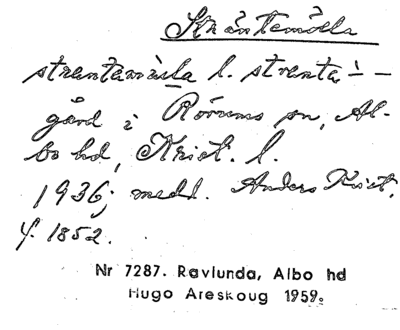 Sträntemölla
strentamöla l. strenta - -
gård i Rörums sn, Al-
bo hd, Krist. l.
1936; medd. Anders Kvist,
f. 1852.
Nr 7287. Ravlunda, Albo hd
Hugo Areskoug 1959.